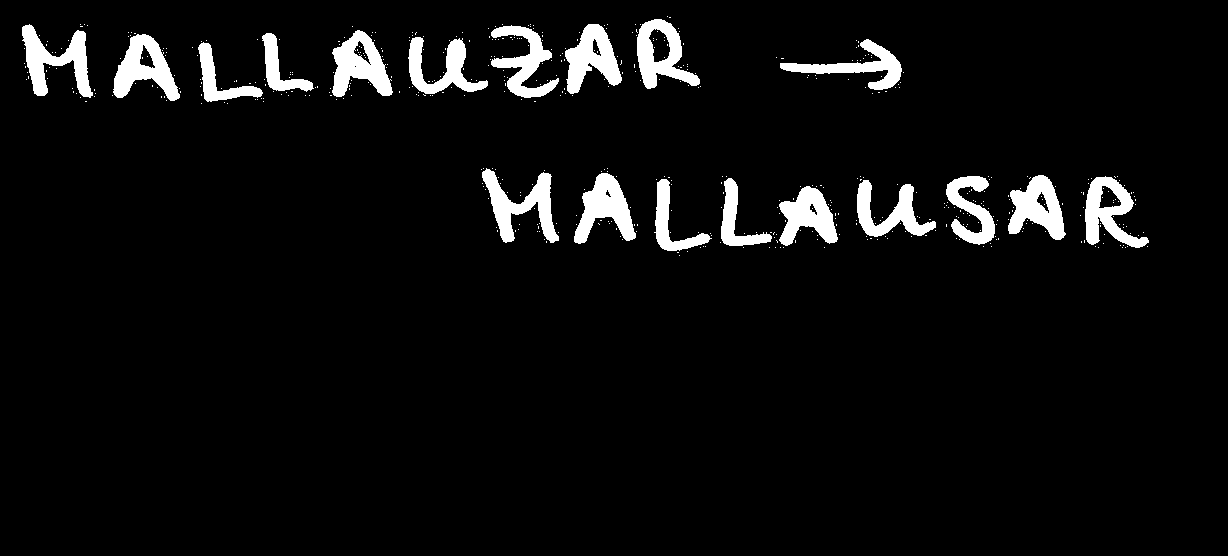 MALLAUZAR →
MALLAUSAR